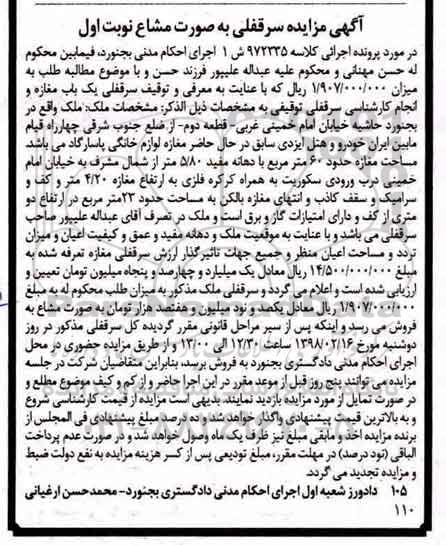 آگهی مزایده سرقفلی به صورت مشاع نوبت اول
در مورد پرونده اجرائی کلاسه ۹۷۲۳۳۵ ش ۱ اجرای احکام مدنی بجنورد، فیمابین محکوم
له حسن مهنانی و محکوم علیه عبداله علیپور فرزند حسن و با موضوع مطالبه طلب به
میزان ۱/۹۰۷/۰۰۰/۰۰۰ ریال که با عنایت به معرفی و توقیف سرقفلی یک باب مغازه و
انجام کارشناسی سرقفلی توقیفی به مشخصات ذیل الذکر: مشخصات ملک: ملک واقع در
بجنورد حاشیه خیابان امام خمینی غربی - قطعه دوم- از ضلع جنوب شرقی چهارراه قیام
مابین ایران خودرو و هتل ایزدی سابق در حال حاضر مغازه لوازم خانگی پاسارگاد می باشد.
مساحت مغازه حدود ۶۰ متر مربع با دهانه مفید ۵/۸۰ متر از شمال مشرف به خیابان امام
خمینی درب ورودی سکوریت به همراه کرکره فلزی به ارتفاع مغازه ۴/۲۰ متر و کف و
سرامیک و سقف کاذب و انتهای مغازه بالکن به مساحت حدود ۲۳متر مربع در ارتفاع دو
متری از کف و دارای امتیازات گاز و برق است و ملک در تصرف آقای عبداله علیپور صاحب
سرقفلی می باشد و با عنایت به موقعیت ملک و دهانه مفید و عمق و کیفیت اعیان و میزان
تردد و مساحت اعیان منظر و جمیع جهات تاثیرگذار ارزش سرقفلی مغازه تعرفه شده به
مبلغ ۱۴/۵۰۰/۰۰۰/۰۰۰ ریال معادل یک میلیارد و چهارصد و پنجاه میلیون تومان تعیین و
ارزیابی شده است و اعلام می گردد و سرقفلی ملک مذکور به میزان طلب محکوم له به مبلغ
۱/۹۰۷/۰۰۰/۰۰۰ ریال معادل یکصد و نود میلیون و هفتصد هزار تومان به صورت مشاع به
فروش می رسد و اینکه پس از سیر مراحل قانونی مقرر گردیده کل سرقفلی مذکور در روز
دوشنبه مورخ ۱۳۹۸/۰۲/۱۶ ساعت ۱۲/۳۰ الی ۱۳/۰۰ و از طریق مزایده حضوری در محل
اجرای احکام مدنی دادگستری بجنورد به فروش برسد، بنابراین متقاضیان شرکت در جلسه
مزایده می توانند پنج روز قبل از موعد مقرر در این اجرا حاضر و از کم و کیف موضوع مطلع و
در صورت تمایل از مورد مزایده بازدید نمایند. بدیهی است مزایده از قیمت کارشناسی شروع
و به بالاترین قیمت پیشنهادی واگذار خواهد شد و ده درصد مبلغ پیشنهادی فی المجلس از
برنده مزایده اخذ و مابقی مبلغ نیز ظرف یک ماه وصول خواهد شد و در صورت عدم پرداخت
الباقی (نود درصد) در مهلت مقرر، مبلغ تودیعی پس از کسر هزینه مزایده به نفع دولت ضبط
و مزایده تجدید می گردد.
۱۰۵ دادورز شعبه اول اجرای احکام مدنی دادگستری بجنورد- محمدحسن ارغیانی
۱۱۰